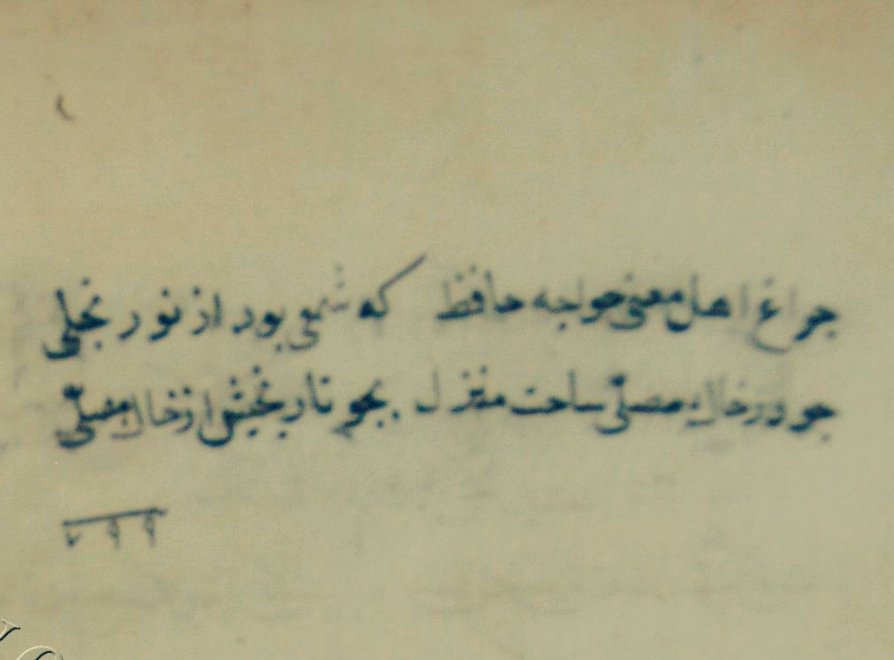 چراغ اهل معنی خواجه حافظ که شمعی بود از نور تجلی
چو در خاک مصلی ساخت منزل بجو تاریخش از خاک مصلی
۷۹۹